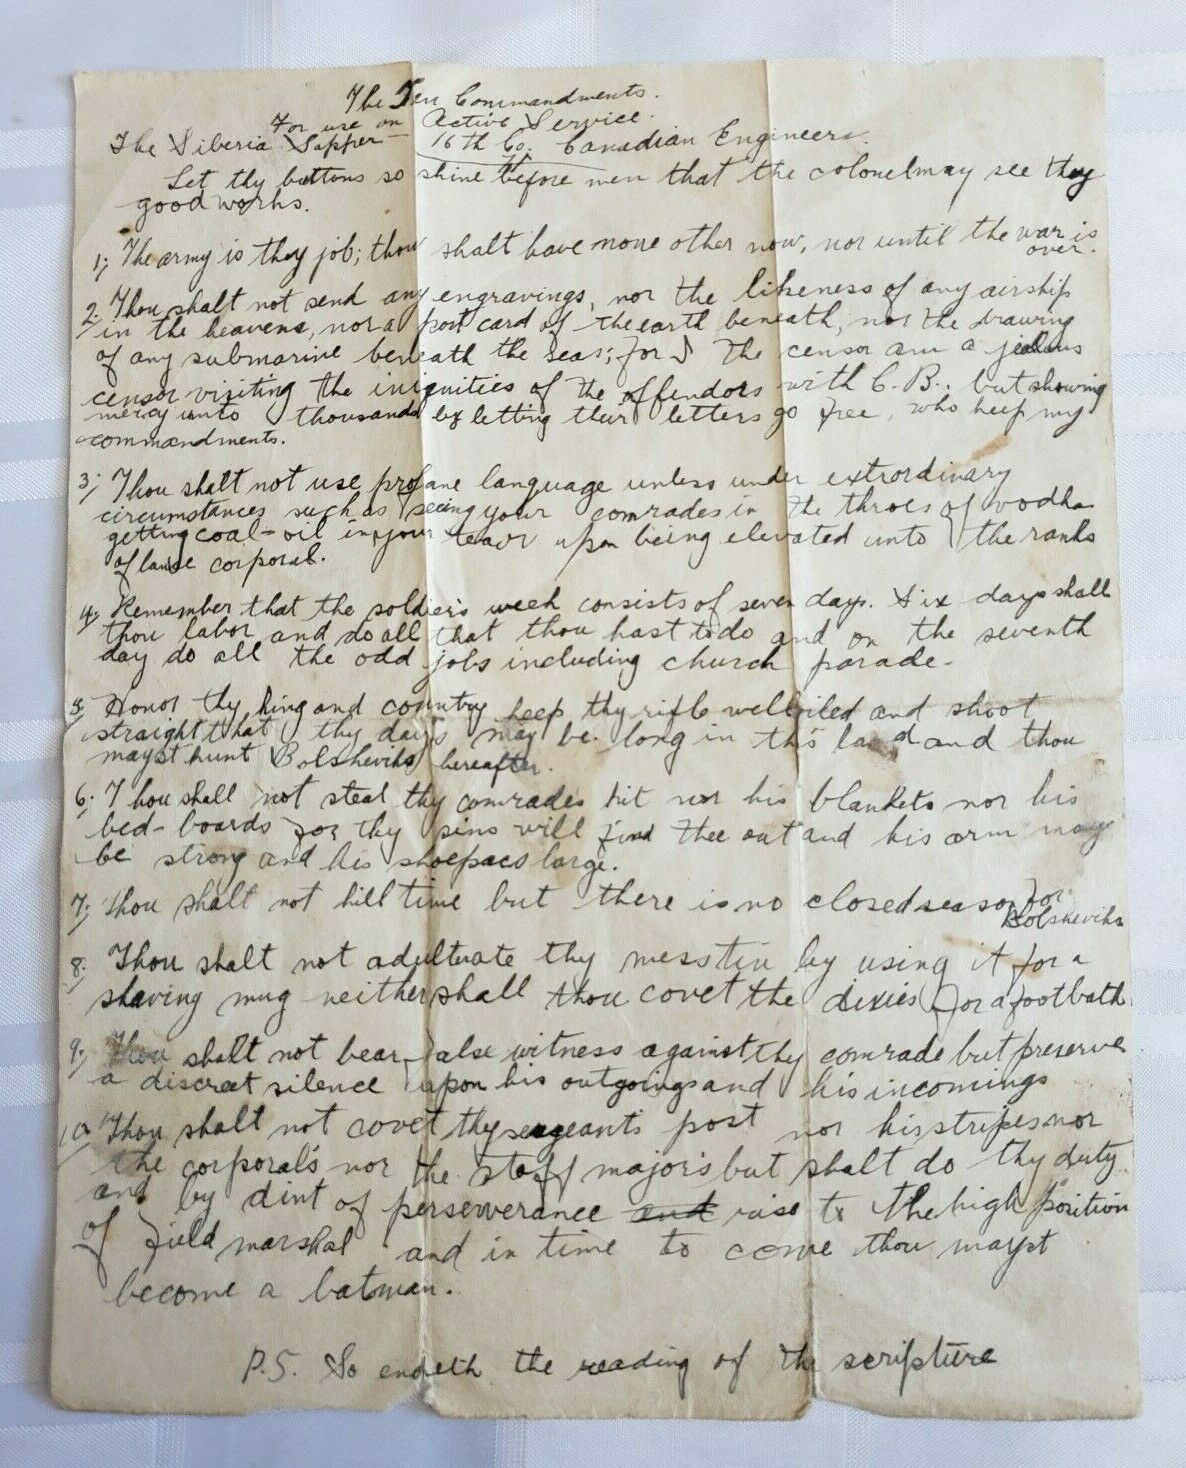 The Ten Commandments.
For use on Active Service.
The Siberia Sapper — 16th Co. Canadian Engineers.
Let thy buttons so shine before men that the colonel may see thy
good works.
1; The army is thy job; thou shalt have none other now, nor until the war is
over.
2. Thou shalt not send any engravings, nor the likeness of any airship
in the heavens, nor a post card of the earth beneath, nor the drawing
of any submarine beneath the seas; for I the censor am a jealous
censor visiting the iniquities of the offendors with C.B., but showing
mercy unto thousands by letting their letters go free, who keep my
commandments.
3; Thou shalt not use profane language unless under extrordinary
circumstances such as seeing your comrades in the throes of vodka
getting coal-oil in your upon being elevated unto the ranks
of lance corporal.
4; Remember that the soldier's week consists of seven days. Six days shall
thou labor and do all that thou hast to do and on the seventh
day do all the odd jobs including church parade-
5; Honor thy king and country keep thy rifle well oiled and shoot
straight that thy days may be long in this land and thou
mayst hunt Bolsheviks hereafter.
6; Thou shall not steal thy comrades kit nor his blankets nor his
bed-boards for thy sins will find thee out and his arm may
be strong and his shoepacs large.
7; Thou shalt not kill time but there is no closed season for
Bolsheviks
8; Thou shalt not adulturate thy messtin by using it for a
shaving mug neither shall thou covet the dixies for a footbath.
9; Thou shalt not bear false witness against thy comrade but preserve
a discreet silence upon his outgoings and his incomings
10 Thou shalt not covet thy sergeants post nor his stripes nor
the corporal's nor the staff major's but shalt do thy duty
and by dint of perserverance and rise to the high position
of field marshal and in time to come thou mayst
become a batman.
P.S. So endeth the reading of the scripture